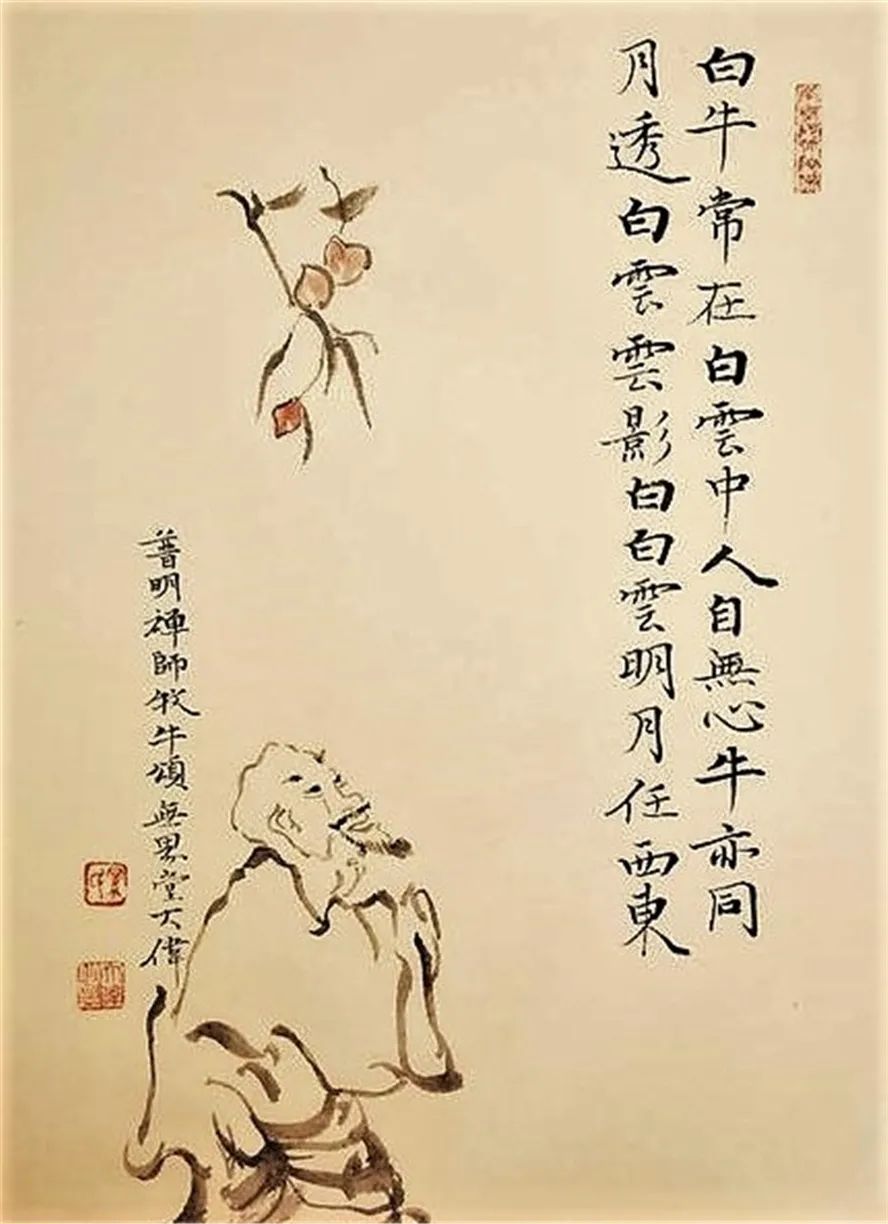 白牛常在白雲中人自無心牛亦同
月透白雲雲影白白雲明月任西東
普明禪師牧牛頌無畏堂大偉